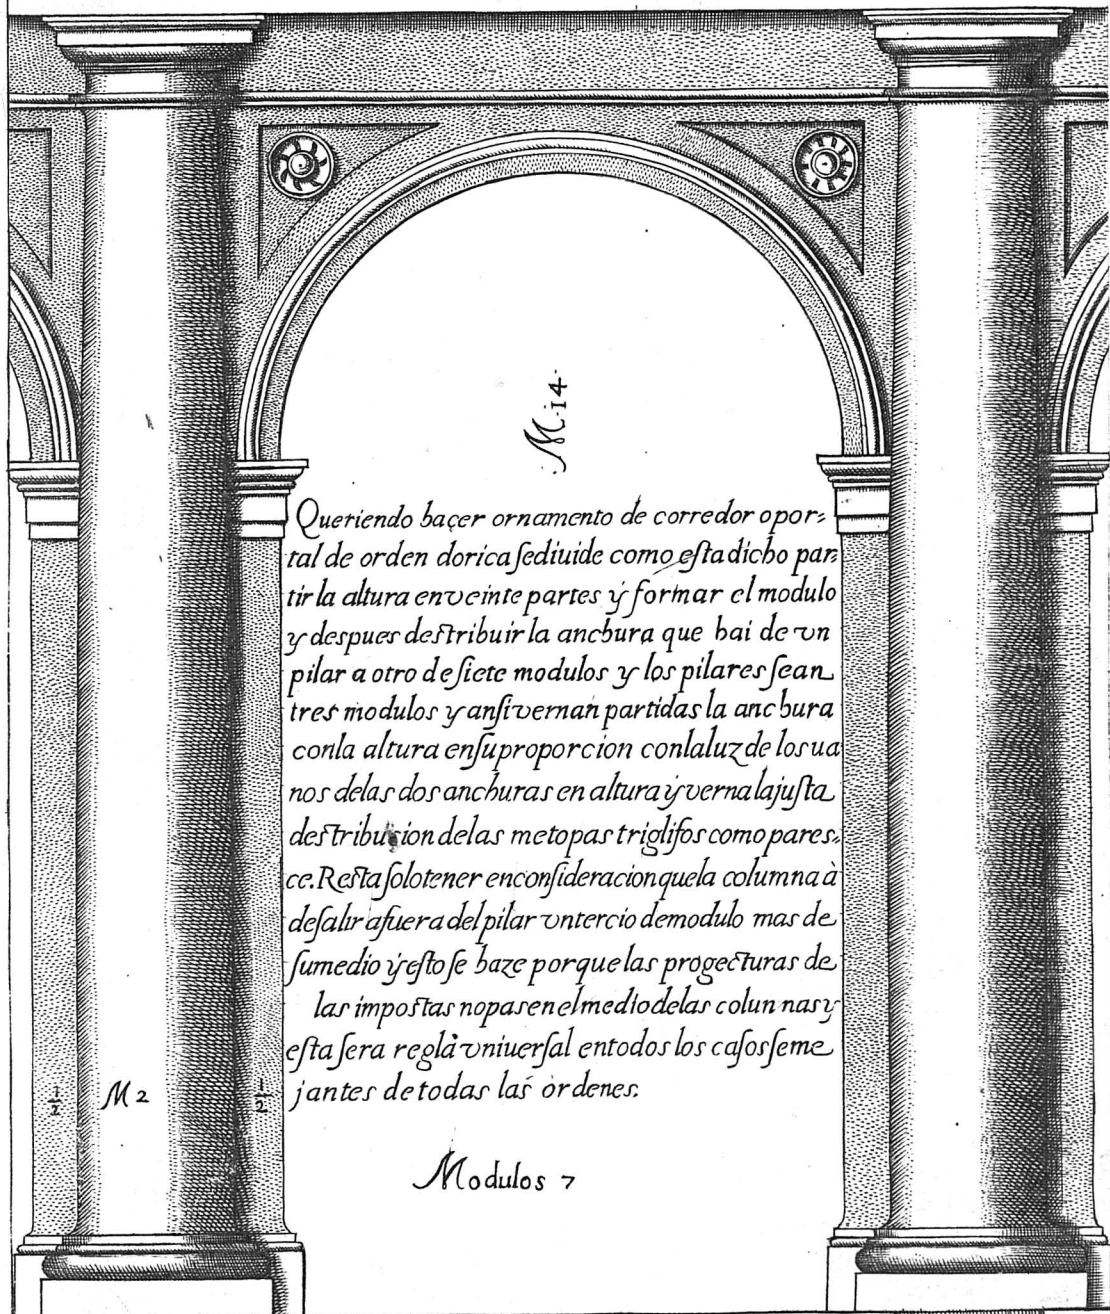 M.14.
Queriendo haçer ornamento de corredor opor-
tal de orden dorica sediuide como esta dicho par-
tir la altura enveinte partes y formar el modulo
y despues destribuir la anchura que hai de vn
pilar a otro de siete modulos y los pilares sean
tres modulos y ansi vernan partidas la anchura
conla altura ensu proporcion conlaluz de los ua
nos delas dos anchuras en altura y verna lajusta
destribucion delas metopas triglifos como pares-
ce. Resta solo tener enconsideracion quela columna à
desalir afuera del pilar vntercio demodulo mas de
sumedio y esto se haze porque las progecturas de
las impostas nopasen el medio delas colunnas y
esta sera regla vniuersal entodos los casos seme
jantes detodas las ordenes.
1/2 M 2 1/2
Modulos 7